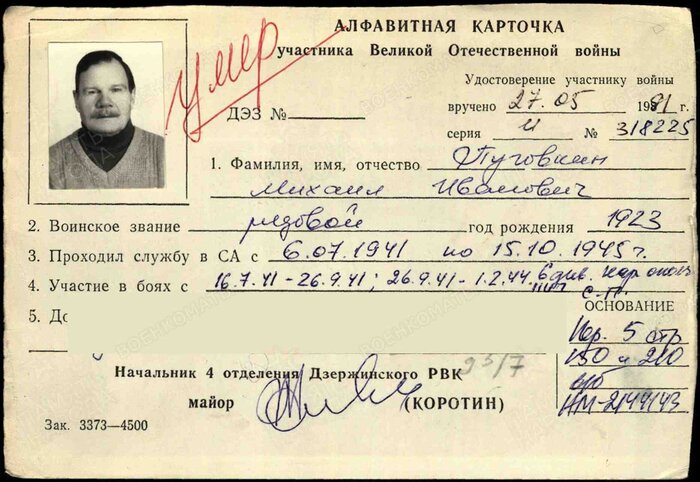 АЛФАВИТНАЯ КАРТОЧКА
участника Великой Отечественной войны
Умер
Удостоверение участнику войны
ДЭЗ №
вручено 27.05 1981 г.
серия И № 318225
1. Фамилия, имя, отчество Пуговкин
Михаил Иванович
2. Воинское звание рядовой год рождения 1923
3. Проходил службу в СА с 6.07.1941 по 15.10.1945 г.
4. Участие в боях с 16.7.41-26.9.41; 26.9.41-1.2.44. 6 див. нар. ополч.
с.п.
ОСНОВАНИЕ
5. До
5 стр
150 и 210
НМ-2144143
Начальник 4 отделения Дзержинского РВК
майор (КОРОТИН)
Зак. 3373—4500